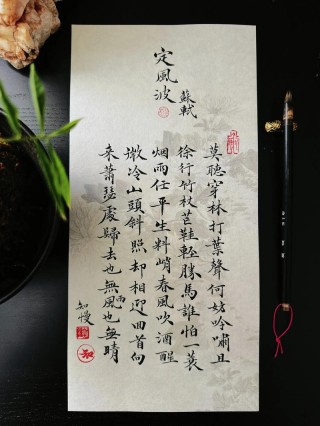 定風波
蘇軾
莫聽穿林打葉聲何妨吟嘯且
徐行竹杖芒鞋輕勝馬誰怕一蓑
烟雨任平生料峭春風吹酒醒
微冷山頭斜照却相迎回首向
來蕭瑟處歸去也無風雨也無晴
知慢
知